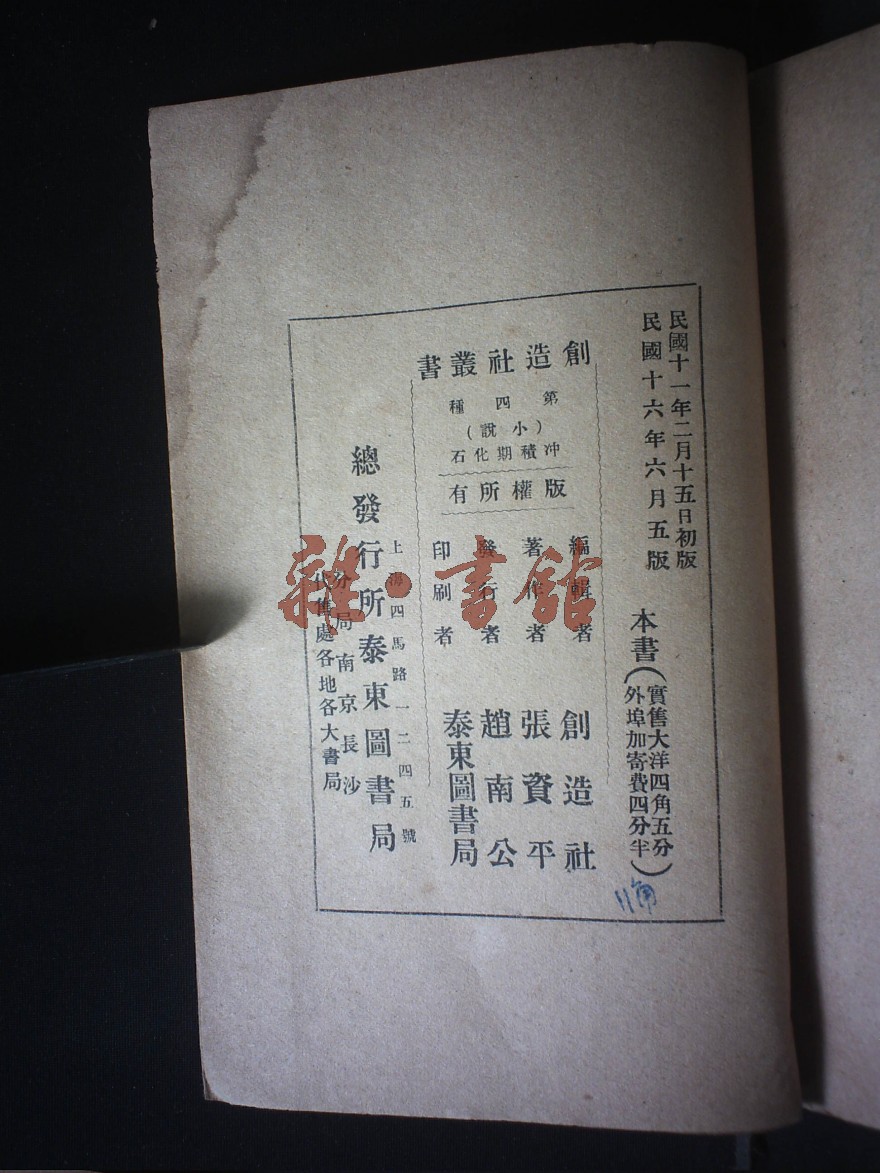 民國十一年二月十五日初版
民國十六年六月五版
本書(實售大洋四角五分
外埠加寄費四分半)
創造社叢書
第四種
(小說)
冲積期化石
版權所有
編輯者 創造社
著作者 張資平
發行者 趙南公
印刷者 泰東圖書局
上海四馬路一二四五號
總發行所泰東圖書局
分局南京長沙
代售處各地各大書局
雜·書館